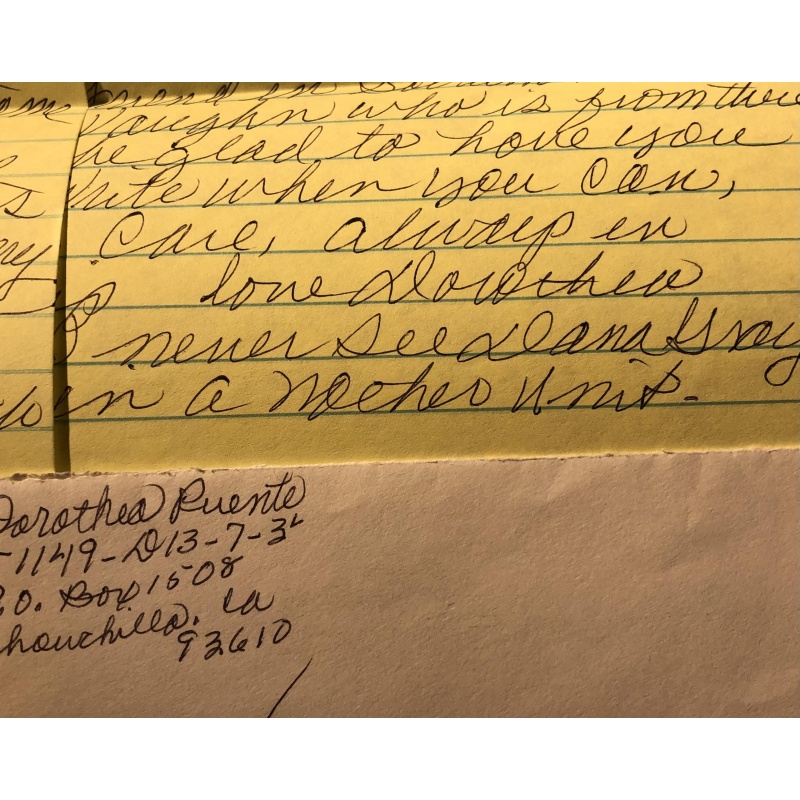 friend in
Vaughn who is from
be glad to have you
s Write when you can,
Care, always in
love Dorothea
never see Dana Gray
in a nother Unit.
Dorothea Puente
-1149-D13-7-3L
P.O. Box 1508
Chowchilla. Ca
93610